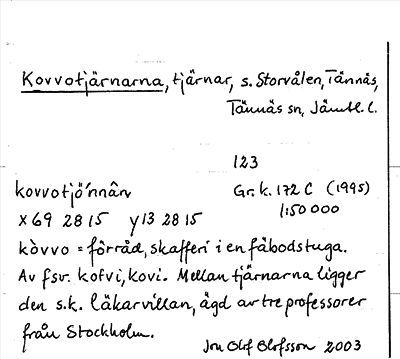 Kovvotjärnarna, tjärnar, s. Storvålen, Tännäs,
Tännäs sn, Jämtl. l.
123
kovvotjö́nnân Gr. k. 172 C (1995)
x 69 28 15 y 13 28 15 1:50 000
kòvvo = förråd, skafferi i en fäbodstuga.
Av fsv. kofvi, kovi. Mellan tjärnarna ligger
den s.k. läkarvillan, ägd av tre professorer
från Stockholm.
Jon Olof Olofsson 2003